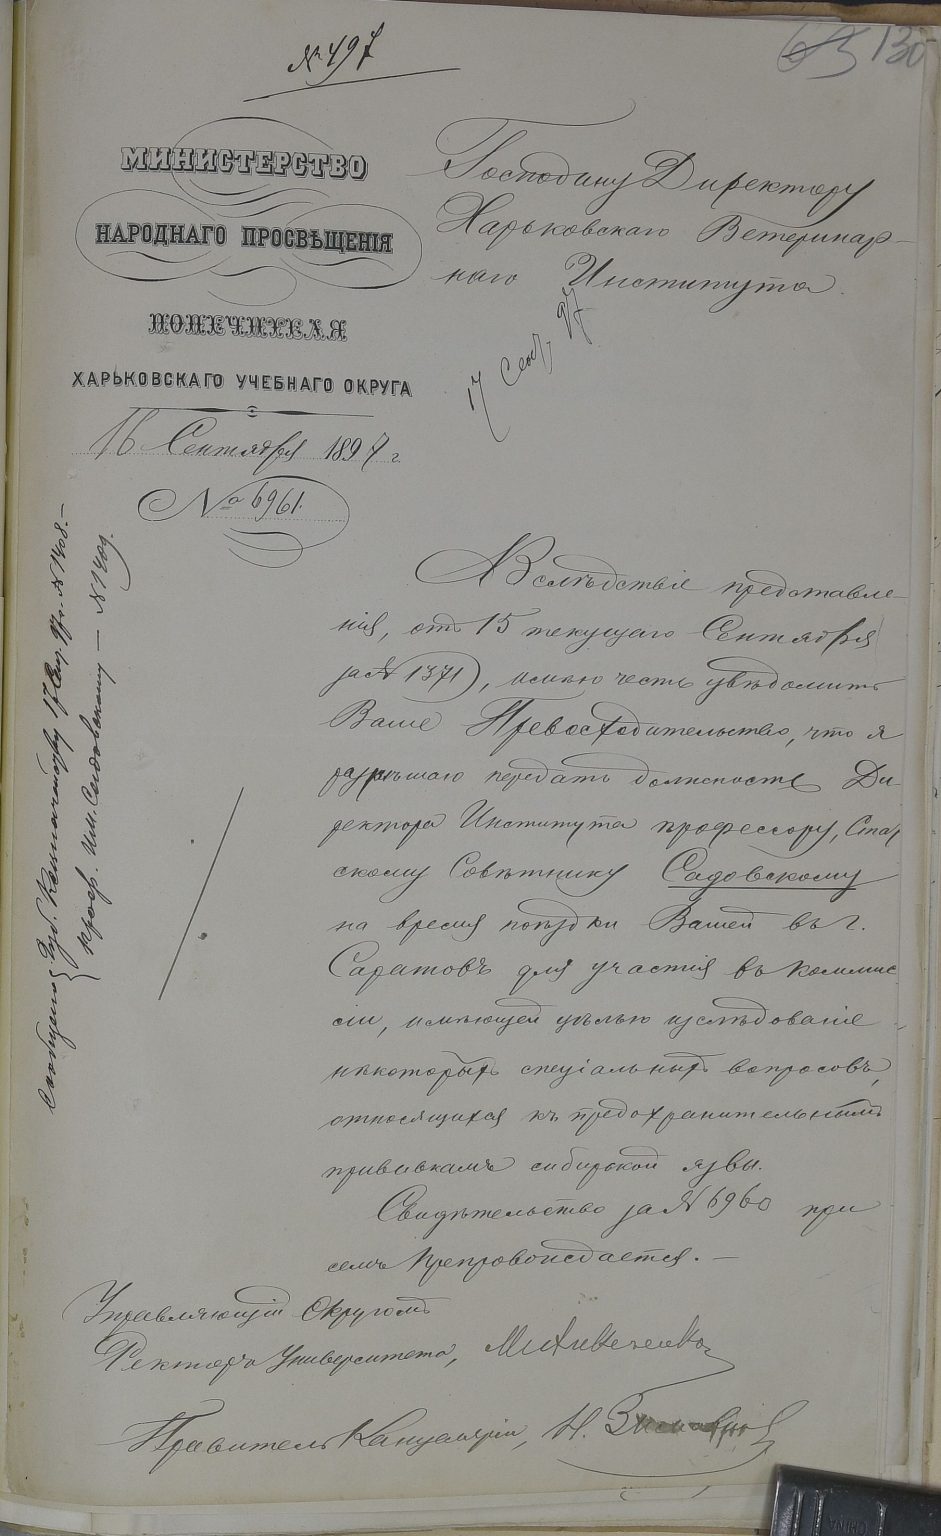 № 497
63 130
МИНИСТЕРСТВО
НАРОДНАГО ПРОСВѢЩЕНІЯ
ПОПЕЧИТЕЛЯ
ХАРЬКОВСКАГО УЧЕБНАГО ОКРУГА
16 Сентября 1897 г.
№ 6961.
Господину Директору
Харьковскаго Ветеринар-
наго Института
17 Сент. 97
Вслѣдствіе представле-
нія, отъ 15 текущаго Сентября
за № 1371), имѣю честь увѣдомить
Ваше Превосходительство, что я
разрѣшаю передать должность Ди
ректора Института профессору, Стат
скому Совѣтнику Садовскому
на время поѣздки Вашей въ г.
Саратовъ для участія въ коммис
сіи, имѣющей цѣлью изслѣдованіе
нѣкоторыхъ спеціальныхъ вопросовъ,
относящихся къ предохранительнымъ
прививкамъ сибирской язвы.
Свидѣтельство за № 6960 при
семъ препровождается.—
Управляющій Округомъ
Ректоръ Университета, М. Алексеенко
Правитель Канцеляріи, Н.
Сообщено Губ. Казначейству 17 Сен. 97 г. № 1408.—
Проф. Садовскому — № 1409.